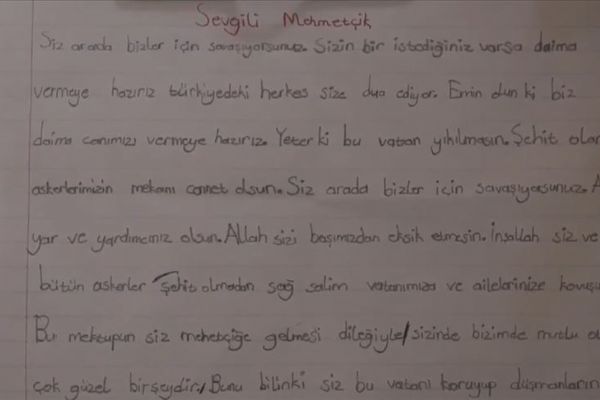 Sevgili Mehmetçik
Siz arada bizler için savaşıyorsunuz. Sizin bir istediğiniz varsa daima
vermeye hazırız türkiyedeki herkes size dua ediyor. Emin olun ki biz
daima canımızı vermeye hazırız. Yeter ki bu vatan yıkılmasın. Şehit olan
askerlerimizin mekanı cennet olsun. Siz arada bizler için savaşıyorsunuz.
yar ve yardımcınız olsun. Allah sizi başımızdan eksik etmesin. İnşallah siz ve
bütün askerler Şehit olmadan sağ salim vatanımıza ve ailelerinize
Bu mektupun siz mehetçiğe gelmesi dileğiyle/sizinde bizimde mutlu
çok güzel birşeydir./Bunu bilinki siz bu vatanı koruyup düşmanların